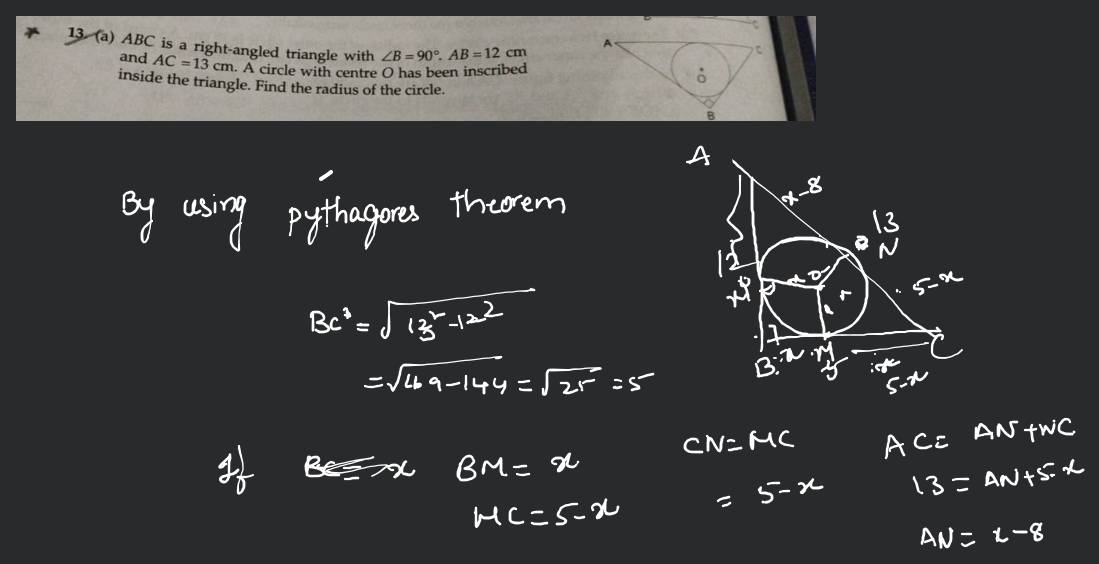 13. (a) ABC is a right-angled triangle with ∠B = 90°. AB = 12 cm
and AC = 13 cm. A circle with centre O has been inscribed
inside the triangle. Find the radius of the circle.
A
C
O
B
By using pythagores theorem
BC³ = √13²-12²
= √169-144 = √25 = 5
If BC = x BM = x
MC = 5-x
A
x-8
13
N
12
5-x
r
B x M
5
C
5-x
CN = MC
= 5-x
AC = AN + NC
13 = AN + 5-x
AN = x-8